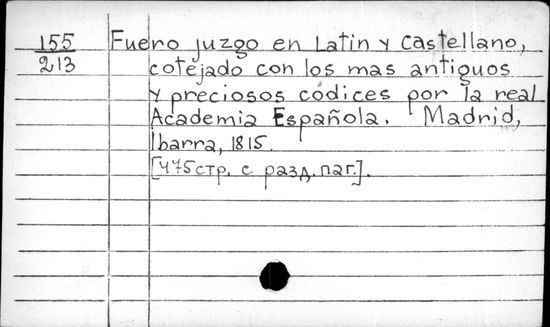 155 Fuero juzgo en Latin y Castellano,
213 cotejado con los mas antiguos
y preciosos códices por la real
Academia Española. Madrid,
Ibarra, 1815.
[475стр. с разд. паг.].